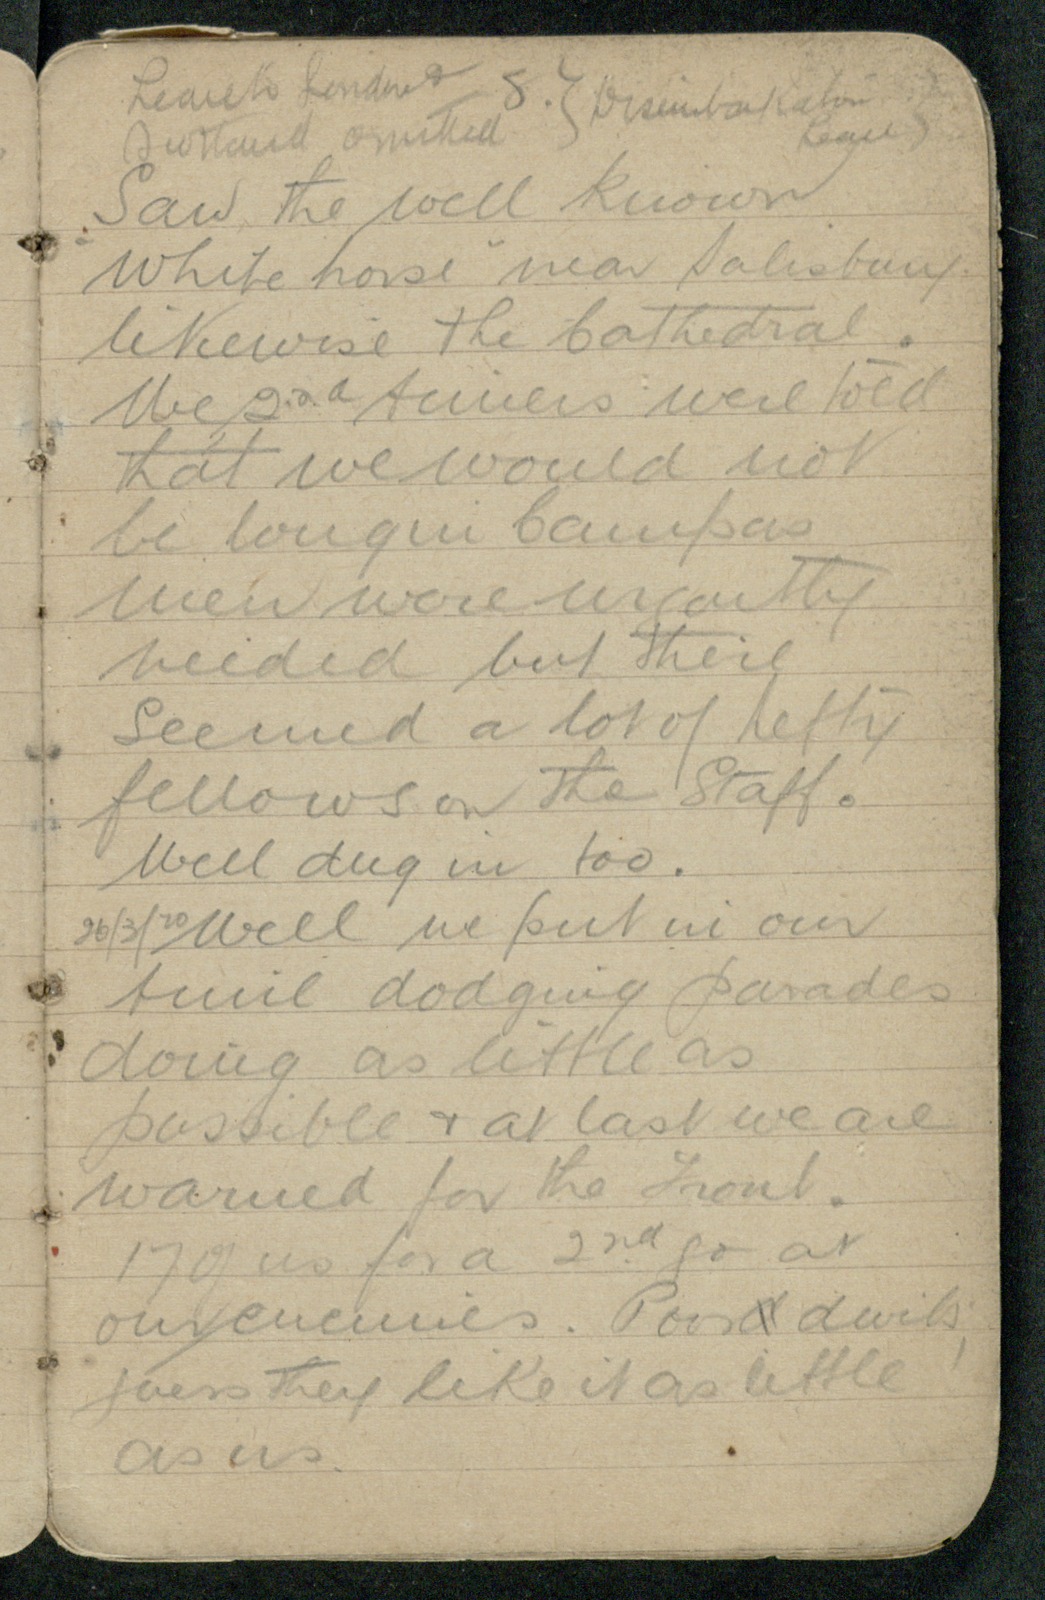 Leave to London & 8. { Disembarkation }
Scotland omitted { Leave }
Saw the well known
"White horse" near Salisbury
likewise the Cathedral.
We 2nd timers were told
that we would not
be long in Camp as
men were urgently
needed but there
seemed a lot of hefty
fellows on the Staff.
Well dug in too.
26/3/ Well we put in our
time dodging parades
doing as little as
possible & at last we are
warned for the Front.
170 of us for a 2nd go at
our enemies. Poor devils,
guess they like it as little
as us.